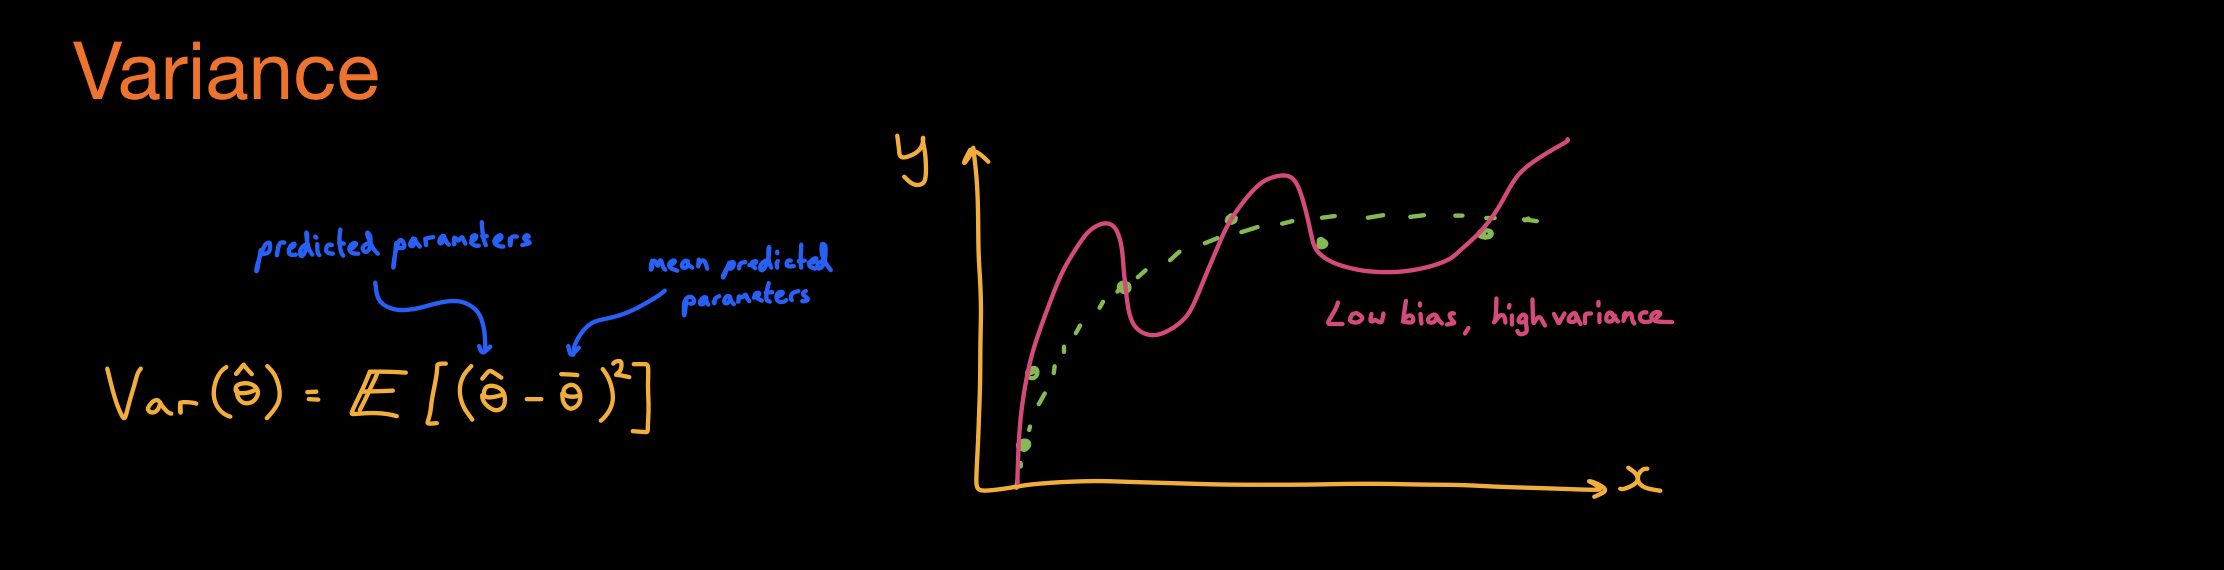 Variance
predicted parameters
mean predicted
parameters
Var(θ̂) = 𝔼[(θ̂ - θ̄)²]
y
Low bias, high variance
x